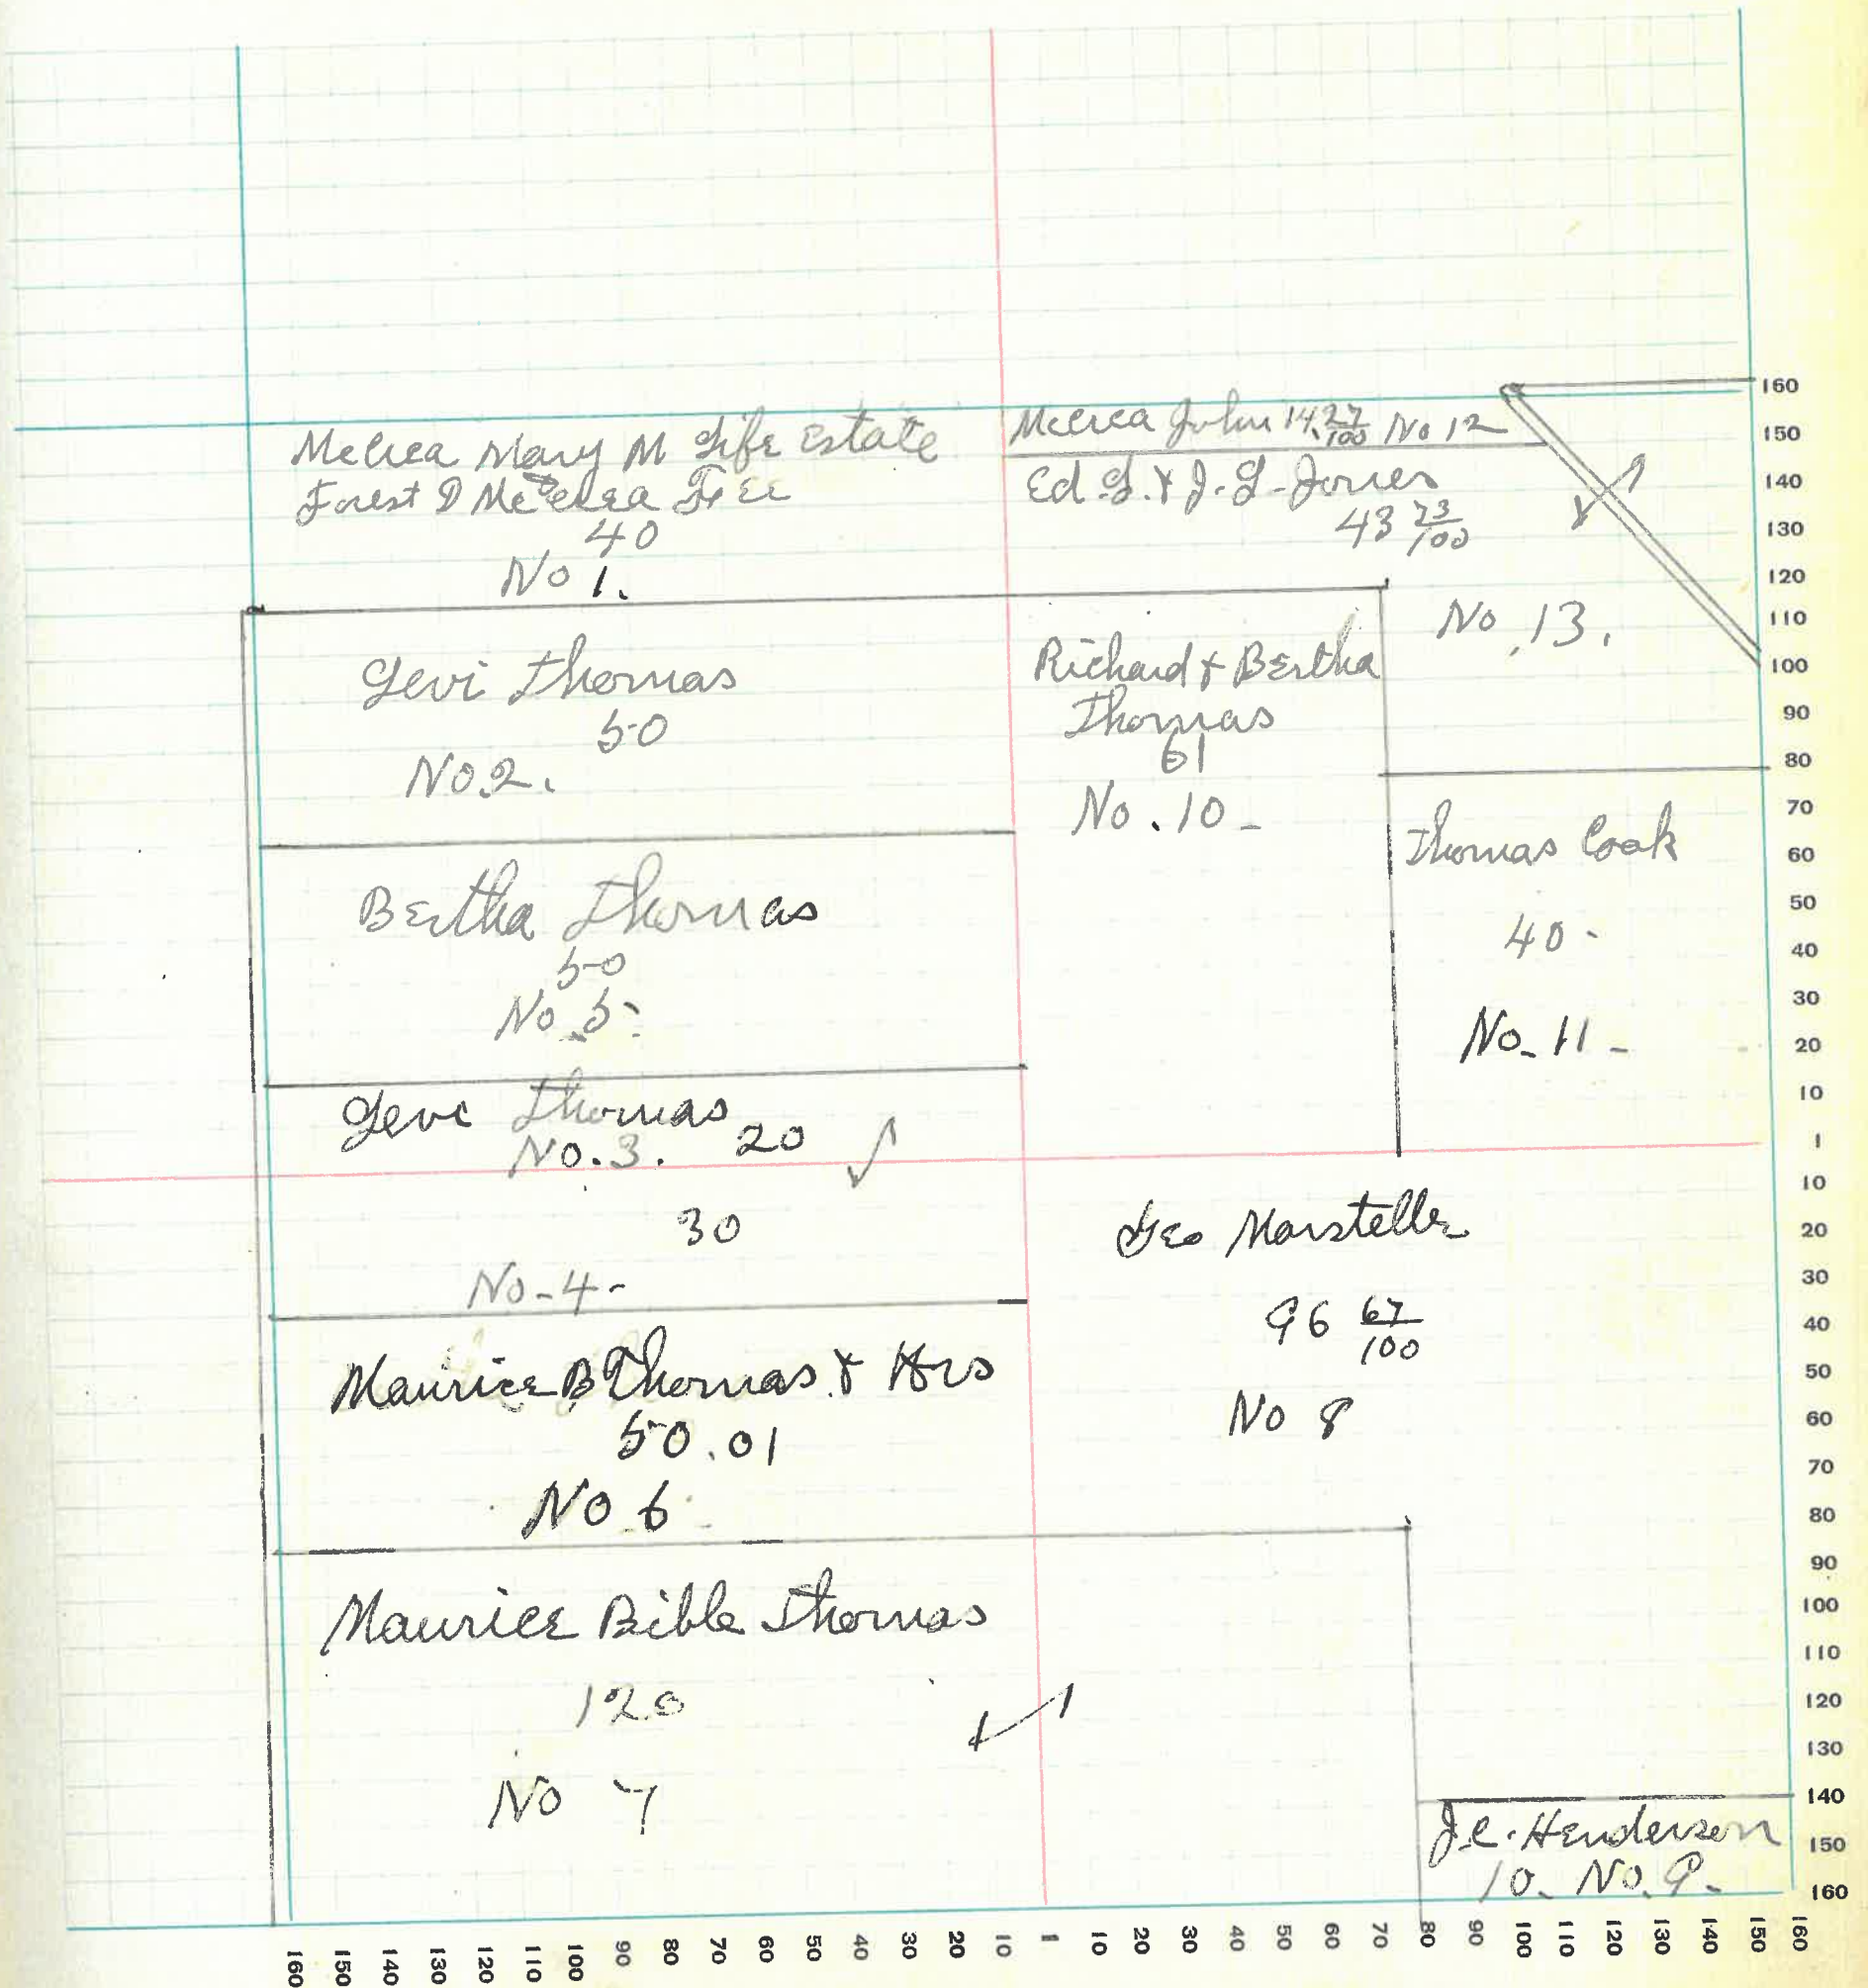 McCrea Mary M Life Estate
Forest D McCrea Fee
40
No 1.
McCrea John 14.27/100 No 12
Ed. L. & J. L. Jones
43 73/100
No. 13.
Levi Thomas
50
No. 2.
Richard & Bertha
Thomas
61
No. 10-
Bertha Thomas
50
No. 5-
Thomas Cook
40-
No- 11-
Levi Thomas
No. 3. 20
30
No-4-
Geo Marsteller
96 67/100
No 8
Maurice B Thomas & Hrs
50.01
No 6
Maurice Bible Thomas
120
No 7
J.C. Henderson
10- No. 9-
160
150
140
130
120
110
100
90
80
70
60
50
40
30
20
10
1
10
20
30
40
50
60
70
80
90
100
110
120
130
140
150
160
160 150 140 130 120 110 100 90 80 70 60 50 40 30 20 10 1 10 20 30 40 50 60 70 80 90 100 110 120 130 140 150 160